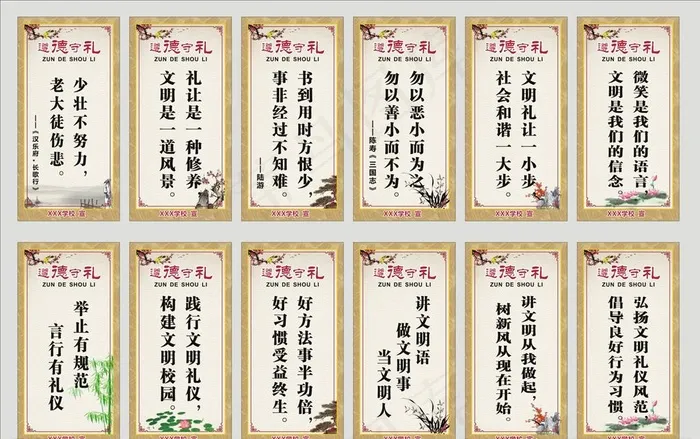 遵德守礼
ZUN DE SHOU LI
少壮不努力，
老大徒伤悲。
——《汉乐府·长歌行》
XXX学校·宣
遵德守礼
ZUN DE SHOU LI
礼让是一种修养
文明是一道风景。
XXX学校·宣
遵德守礼
ZUN DE SHOU LI
书到用时方恨少，
事非经过不知难。
——陆游
XXX学校·宣
遵德守礼
ZUN DE SHOU LI
勿以恶小而为之，
勿以善小而不为。
——陈寿《三国志》
XXX学校·宣
遵德守礼
ZUN DE SHOU LI
文明礼让一小步，
社会和谐一大步。
XXX学校·宣
遵德守礼
ZUN DE SHOU LI
微笑是我们的语言，
文明是我们的信念。
XXX学校·宣
遵德守礼
ZUN DE SHOU LI
举止有规范
言行有礼仪
遵德守礼
ZUN DE SHOU LI
践行文明礼仪，
构建文明校园。
遵德守礼
ZUN DE SHOU LI
好方法事半功倍，
好习惯受益终生。
遵德守礼
ZUN DE SHOU LI
讲文明语
做文明事
当文明人
遵德守礼
ZUN DE SHOU LI
讲文明从我做起，
树新风从现在开始。
遵德守礼
ZUN DE SHOU LI
弘扬文明礼仪风范
倡导良好行为习惯。